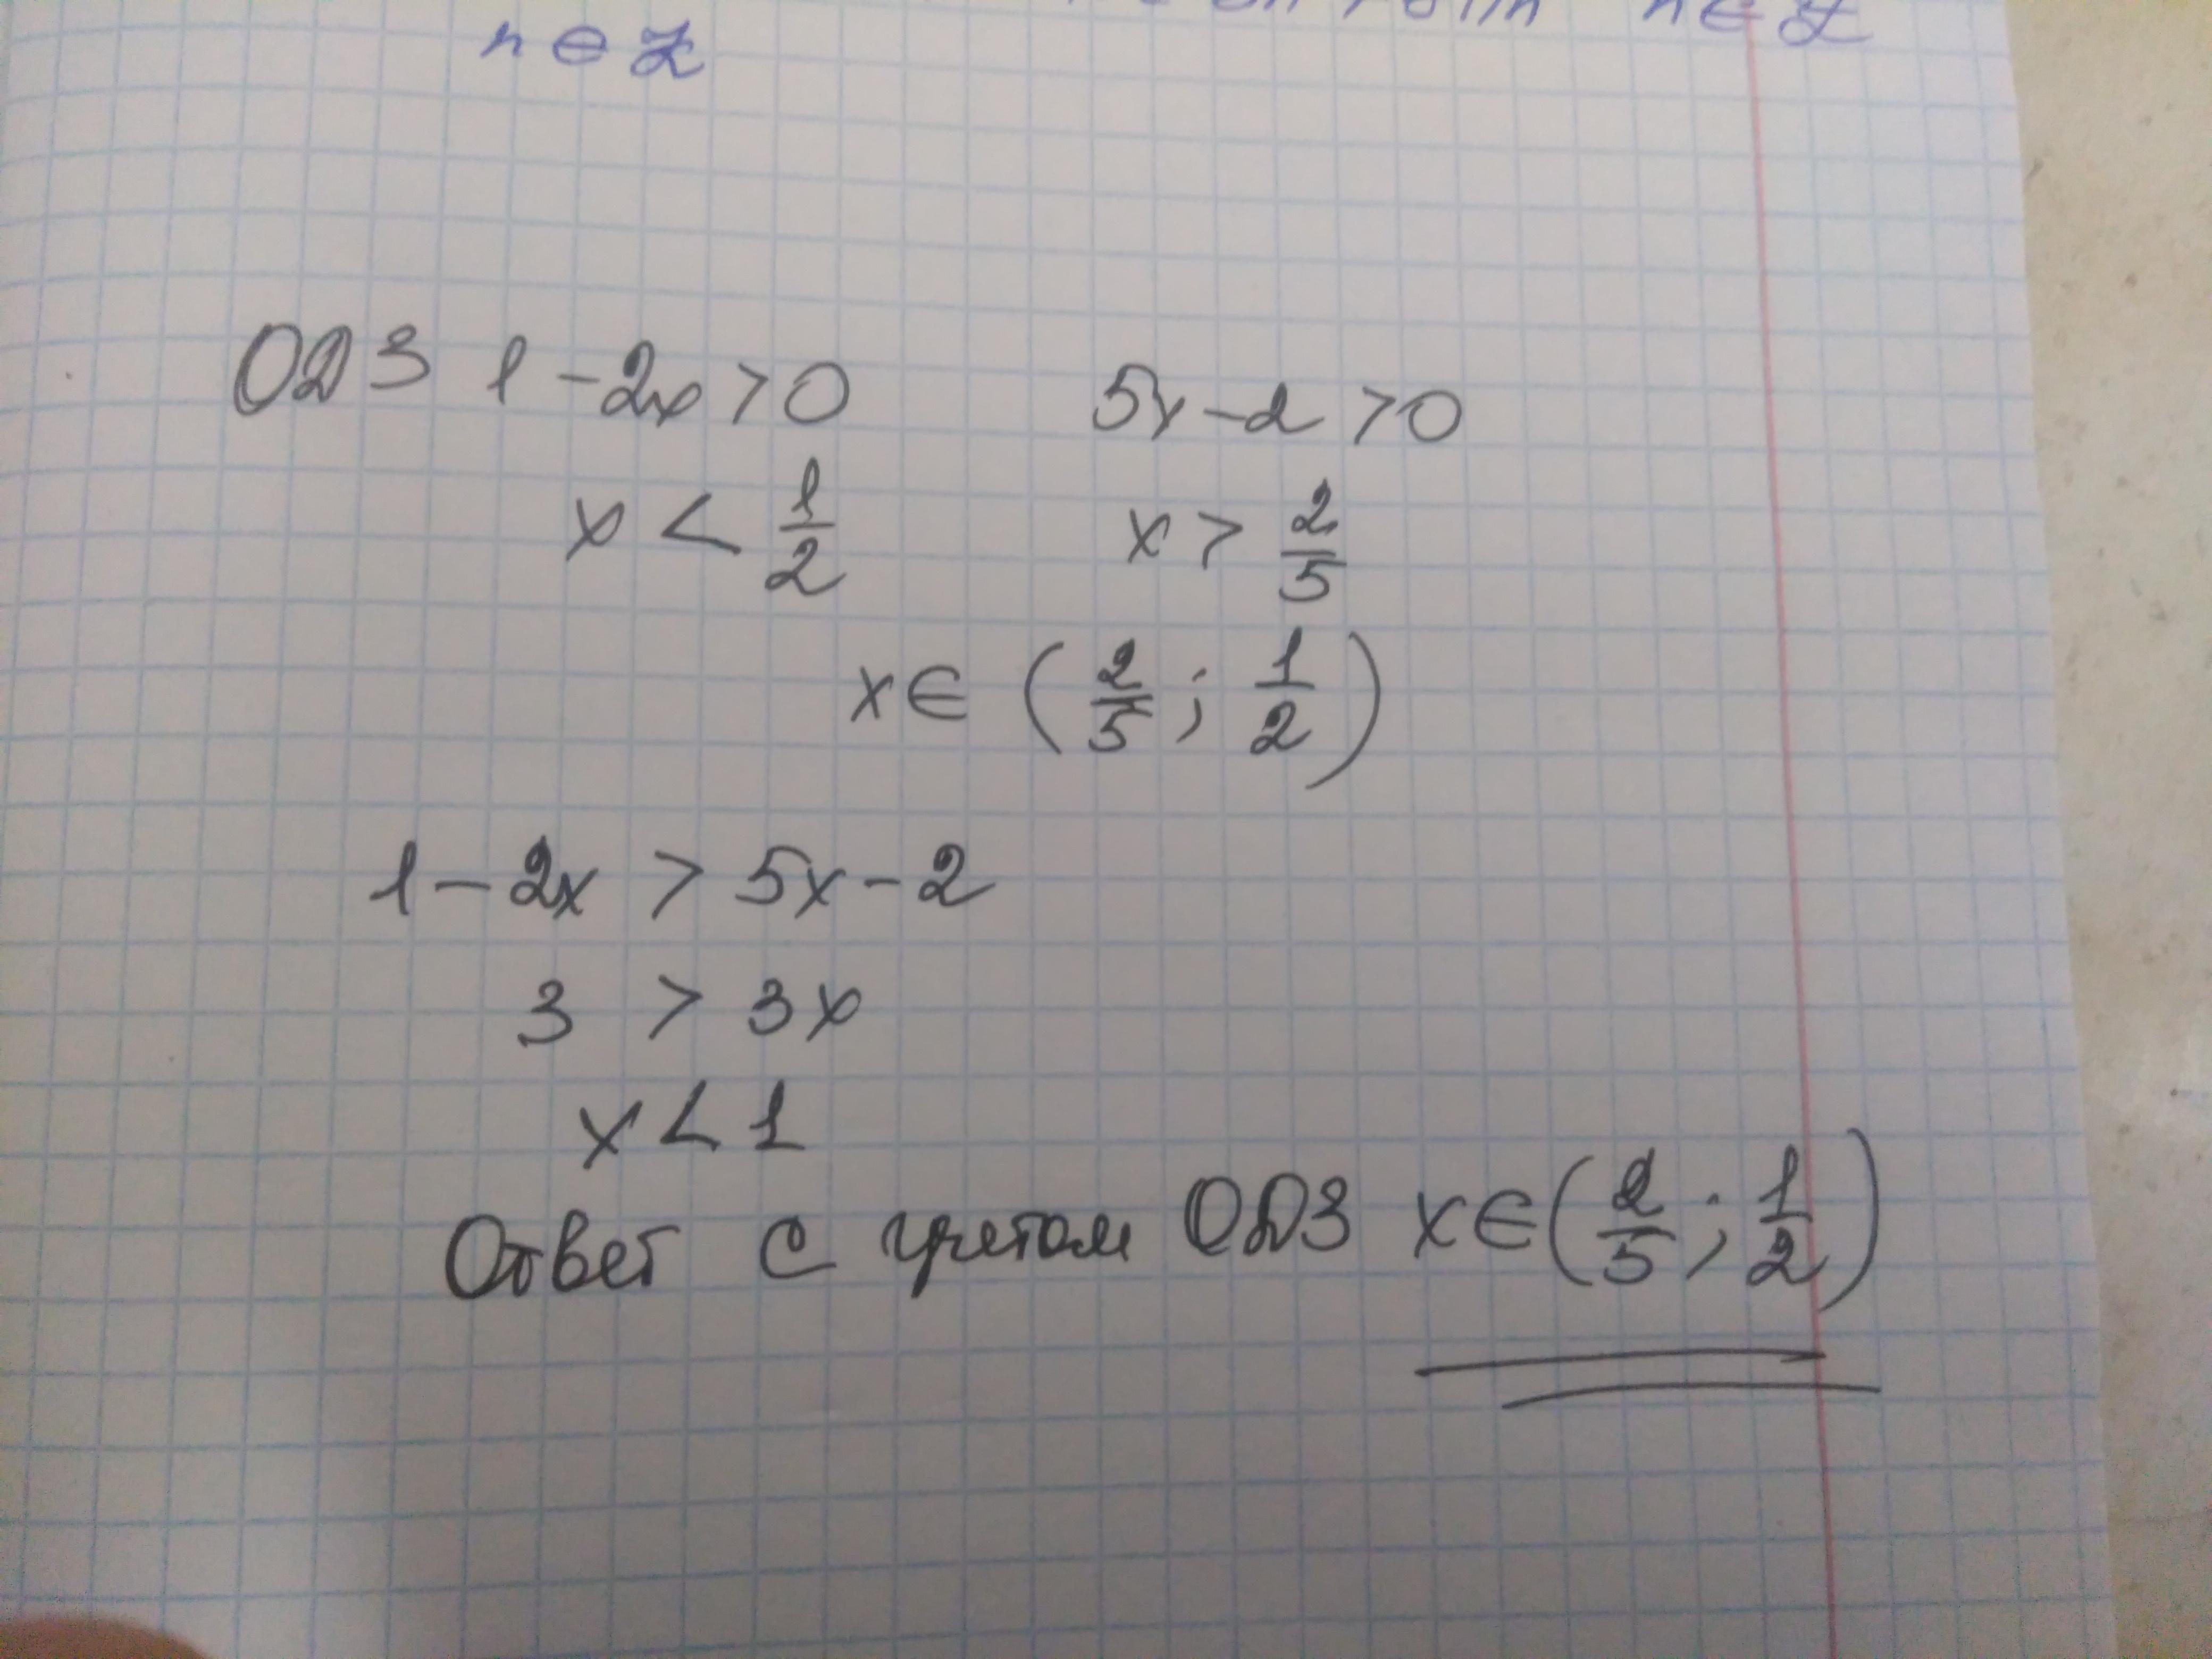 n ∈ Z n ∈ Z
ОДЗ 1 - 2x > 0 5x - 2 > 0
x < 1/2 x > 2/5
x ∈ (2/5 ; 1/2)
1 - 2x > 5x - 2
3 > 3x
x < 1
Ответ с учетом ОДЗ x ∈ (2/5 ; 1/2)